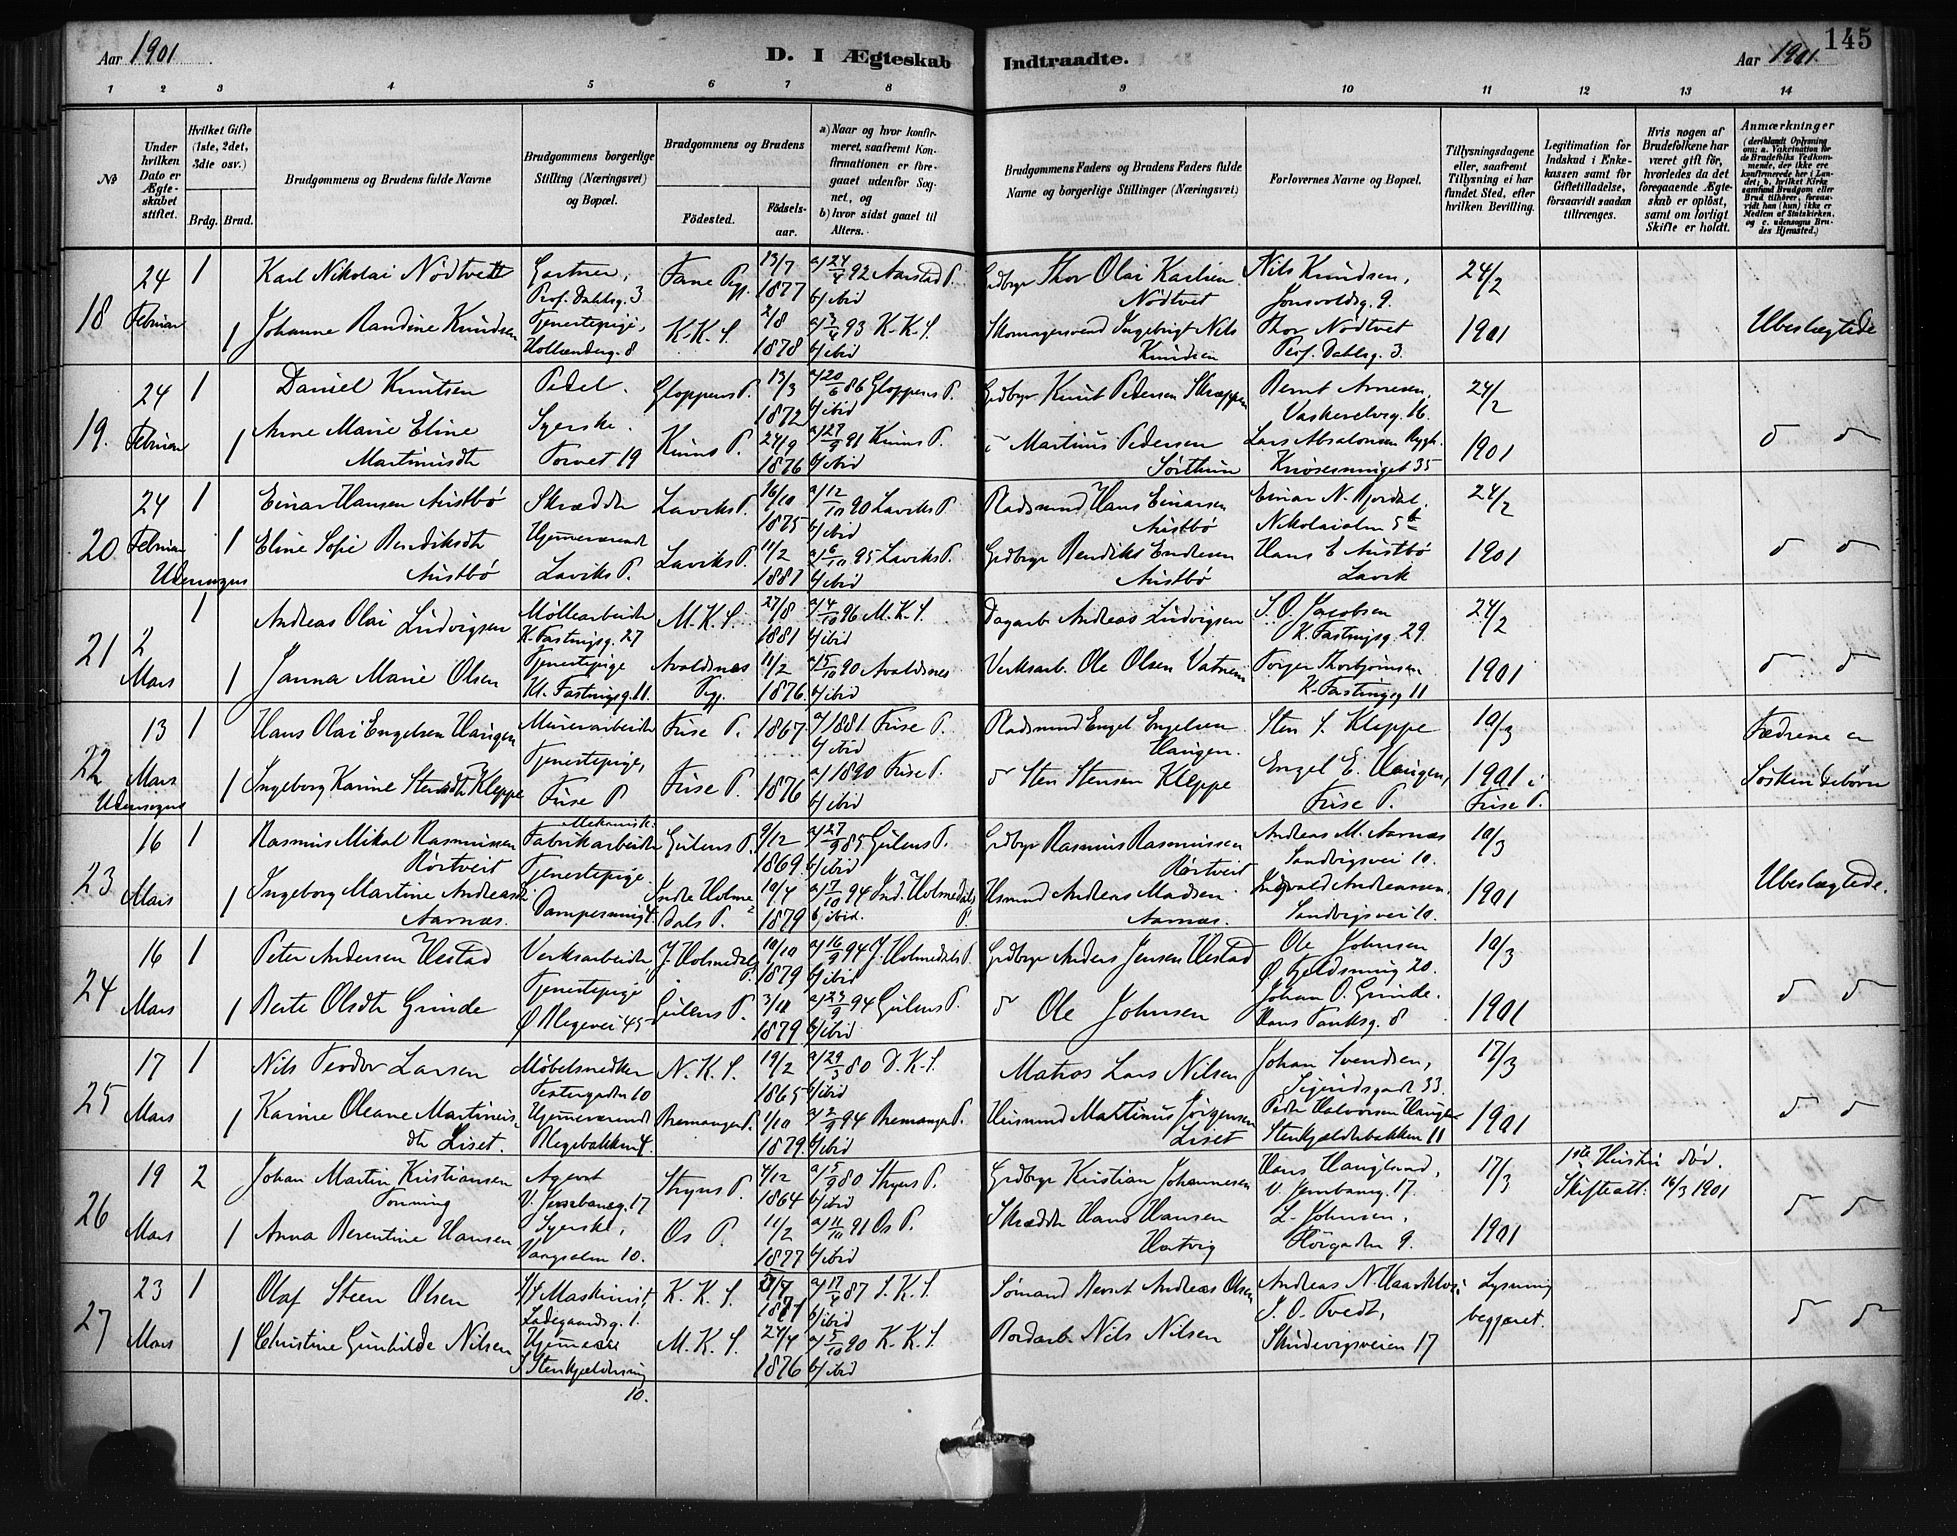 Aar 1901
D. I Ægteskab
Indtraadte.
Aar 1901.
145
1 2 3 4 5 6 7 8 9 10 11 12 13 14
№
Under hvilken Dato er Ægteskabet stiftet.
Hvilket Gifte (1ste, 2det, 3die osv.)
Brdg. Brud.
Brudgommens og Brudens fulde Navne
Brudgommens borgerlige Stilling (Næringsvei) og Bopæl.
Brudgommens og Brudens
Fødested.
Fødselsaar.
a) Naar og hvor konfirmeret, saafremt Konfirmationen er foregaaet udenfor Sognet, og
b) hvor sidst gaaet til Alters.
Brudgommens Faders og Brudens Faders fulde Navne og borgerlige Stillinger (Næringsvei)
Forlovernes Navne og Bopæl.
Tillysningsdagene eller, saafremt Tillysning ei har fundet Sted, efter hvilken Bevilling.
Legitimation for Indskud i Enkekassen samt for Giftetilladelse, forsaavidt saadan tiltrænges.
Hvis nogen af Brudefolkene har været gift før, hvorledes da det foregaaende Ægteskab er opløst, samt om lovligt Skifte er holdt.
Anmærkninger (deriblandt Oplysning om: a. Vakcination for de Brudefolks Vedkommende, der ikke ere konfirmerede her i Landet; b. hvilket Kirkesamfund Brudgom eller Brud tilhører, forsaavidt han (hun) ikke er Medlem af Statskirken, og c. udensogns Brudes Hjemsted.)
18 24 Februar 1 Karl Nikolai Nødtvedt Gartner, Prof. Dahlsg. 3 Fane Pgj. 13/7 1877 a) 24/4 92 Aarstad P. b) ibid Grdbgr Thor Olai Karlsen Nødtvet Nils Knudsen, Jonsvoldsg. 9. 24/2
1 Johanne Randine Knudsen Tjenestepige, Hollænderg. 8 K.K.S. 2/8 1878 a) 3/4 93 K.K.S. b) ibid Skomagersvend Ingebrigt Nils Knudsen Thor Nødtvet Prof. Dahlsg. 3. 1901 Ubeslægtede
19. 24 Februar 1 Daniel Knutsen Pedel. Gloppens P. 13/3 1872 a) 20/6 86 Gloppens P. b) ibid Grdbgr Knut Pedersen Bernt Arnesen, Vaskerelvsg. 16. 24/2
1 Anne Marie Eline Martinusdtr Syerske. Torvet 19 Kinns P. 24/9 1876 a) 27/9 91 Kinns P. b) ibid Martinus Pedersen Lars Absalonsen 35 1901 d d
20 24 Februar Udensogns 1 Einar Hansen Austbø Skrædder Laviks P. 16/10 1875 a) 12/10 90 Laviks P. b) ibid Pladsmand Hans Einarsen Austbø Einar N. Nikolaialm 5b 24/2
1 Eline Sofie Bendiksdtr Austbø Hjemmeværende Laviks P. Laviks P. 11/2 1881 a) 6/10 95 Laviks P. b) ibid Grdbgr Bendikt Endresen Austbø Hans E Austbø Lavik 1901 d d
21 2 Mars 1 Andreas Olai Ludvigsen Møllearbeider K. Fastingsg. 27 M.K.S. 27/8 1881 a) 4/10 96 M.K.S. b) ibid Dagarb. Andreas Ludvigsen S. O. Jacobsen K. Fastingsg. 29. 24/2
1 Janna Marie Olsen Tjenestepige Kl. Fastingsg. 11. Avaldsnes Pgj. 11/2 1876 a) 5/10 90 Avaldsnes b) ibid Verksarb. Ole Olsen Vatnem Torger Thorbjørnsen K. Fastingsg 11 1901 d d
22 13 Mars Udensogns 1 Hans Olai Engelsen Haugen Murerarbeider Fuse P. 1867 a) 1881 Fuse P. b) ibid Pladsmand Engel Engelsen Haugen. Sten S. Kleppe 10/3
1 Ingeborg Karine Stensdtr Kleppe Tjenestepige, Fuse P Fuse P. 1876 a) 1890 Fuse P. b) ibid d Sten Stensen Kleppe Engel E. Haugen, Fuse P. 1901 i Fuse P. Fædrene er Søskendebørn
23 16 Mars 1 Rasmus Mikal Rasmussen Rørtveit Mekanisk. Fabrikarbeider Gulens P. 9/12 1869. a) 27/9 85 Gulens P. b) ibid Grdbgr Rasmus Rasmussen Rørtveit Andreas M. Aarnæs Sandvigsvei 10. 10/3
1 Ingeborg Martine Andreasdt. Aarnæs. Tjenestepige. Indre Holmedals P. 10/4 1879 a) 7/10 94 Ind. Holmedals P. b) ibid. Husmand Andreas Madsen Aarnæs. Andreassen, Sandvigsvei 10. 1901 Ubeslægtede.
24 16 Mars 1 Peter Andersen Hestad Verksarbeider J. Holmedals P. 10/10 1879 a) 16/9 94 J. Holmedals P. b) ibid Grdbgr Anders Jensen Hestad Ole Johnsen Ø. Fjeldsmug 20. 10/3
1 Berte Olsdtr Grinde Tjenestepige Ø Blegevei 45 Gulens P. 3/11 1879. a) 23/9 94 Gulens P. b) ibid d Ole Johnsen Johan O. Grinde. Hans Tanksg. 8 1901 d d
25 17 Mars 1 Nils Teodor Larsen Møbelsnedker Teatergaden 10 N.K.S. 19/2 1865 a) 29/3 80 D.K.S. b) ibid Matros Lars Nilsen Johan Svendsen, Sigurdsgade 33. 17/3
1 Karine Oleane Martinusdtr Liset. Hjemmeværende Blegebakken 4. Bremanger P. 1/10 1879. a) 2/9 94 Bremanger P. b) ibid Husmand Martinus Jørgensen Liset Peder Halvorsen Haugen Stenkjelderbakken 11 1901 d d
26 19 Mars 2 Johan Martin Kristiansen Tonning Agent V. Jernbaneg. 17 Stryns P. 4/12 1864 a) 5/9 80 Stryns P. b) ibid Grdbgr Kristian Johannesen Hans Haugland, V. Jernbaneg. 17. 17/3 1ste Hustru død. Skifteatt. 16/3 1901
1 Anna Berentine Hansen Syerske, Vaagsalm 10. Os P. 11/2 1877 a) 11/10 91 Os P. b) ibid Skrædder Hans Hansen Hatvig L. Johnsen, 9. 1901 d d
27 23 Mars 1 Olaf Steen Olsen Maskinist, Ladegaardsg. 1. K.K.S. a) 17/4 87 S.K.S. b) ibid Sømand Bernt Andreas Olsen Andreas N. Lysning
1 Christine Gunhilde Nilsen Hjemme S Stenkjeldersmug 10. M.K.S. 24/4 1876 a) 5/10 90 K.K.S. b) ibid Bordarb. Nils Nilsen S. O. Tvedt, Skudevigsveien 17 begjæret. d d